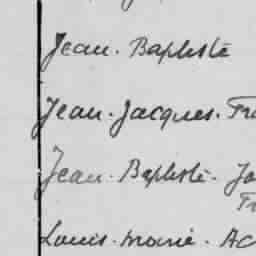 Jean. Baptiste
Jean. Jacques. Fra
Jean. Baptiste. Jo
Fr
Louis. Marie. Ac